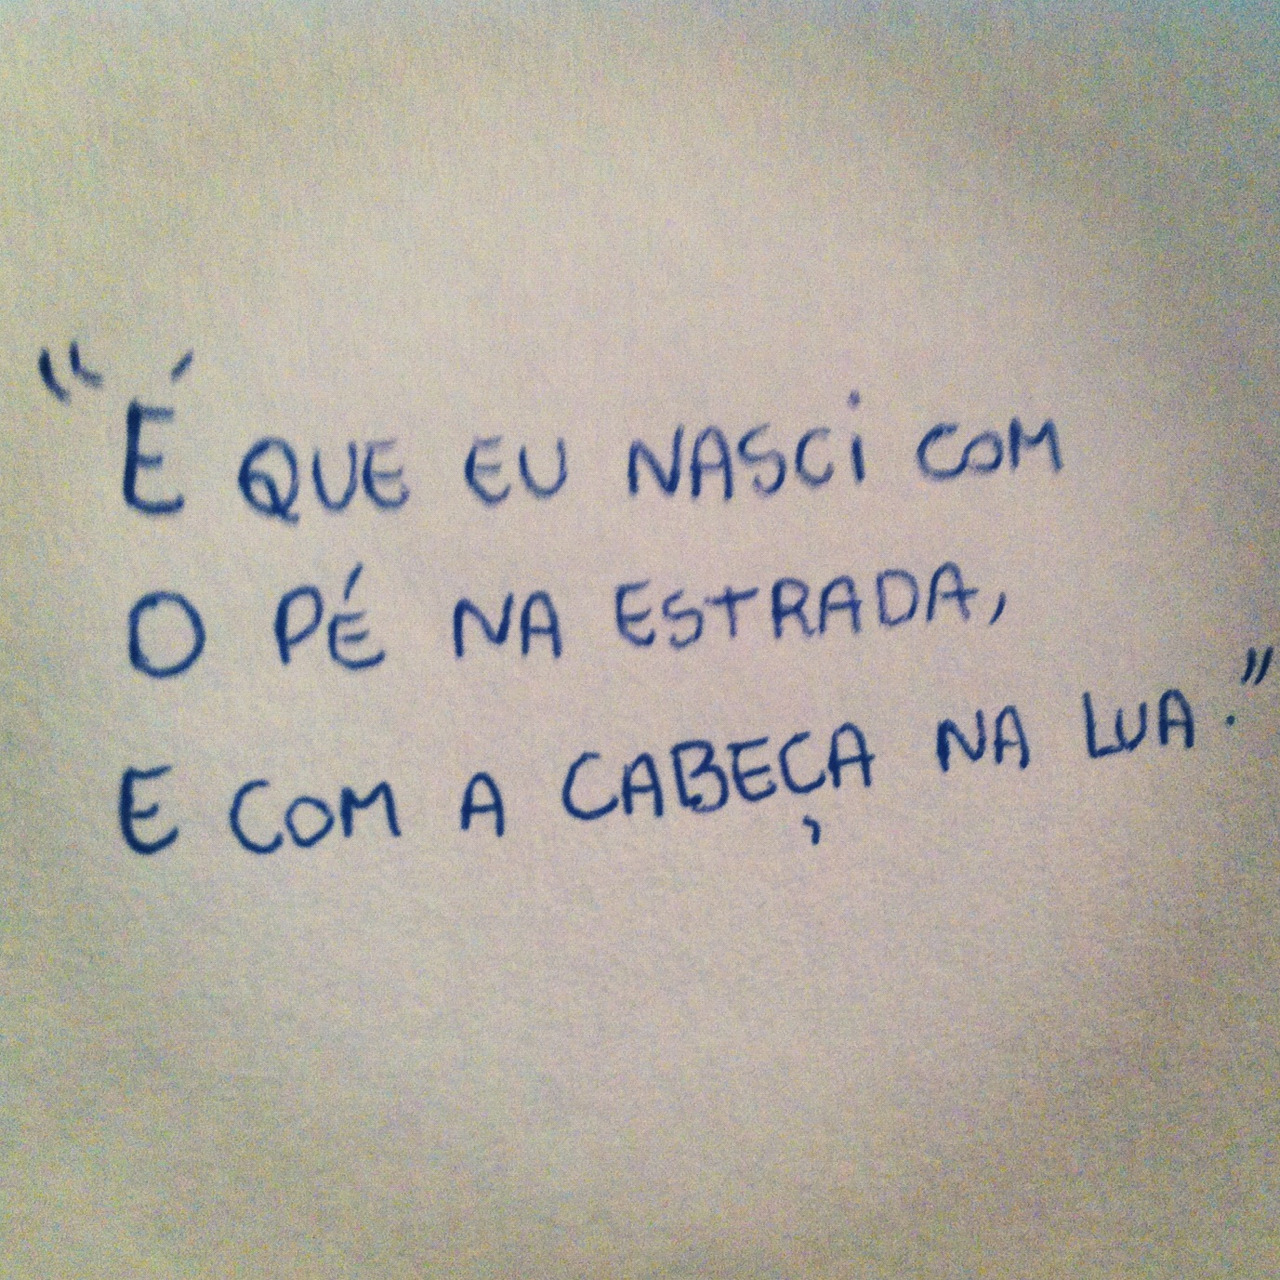 "É QUE EU NASCi COM
O PÉ NA ESTRADA,
E COM A CABEÇA NA LUA."